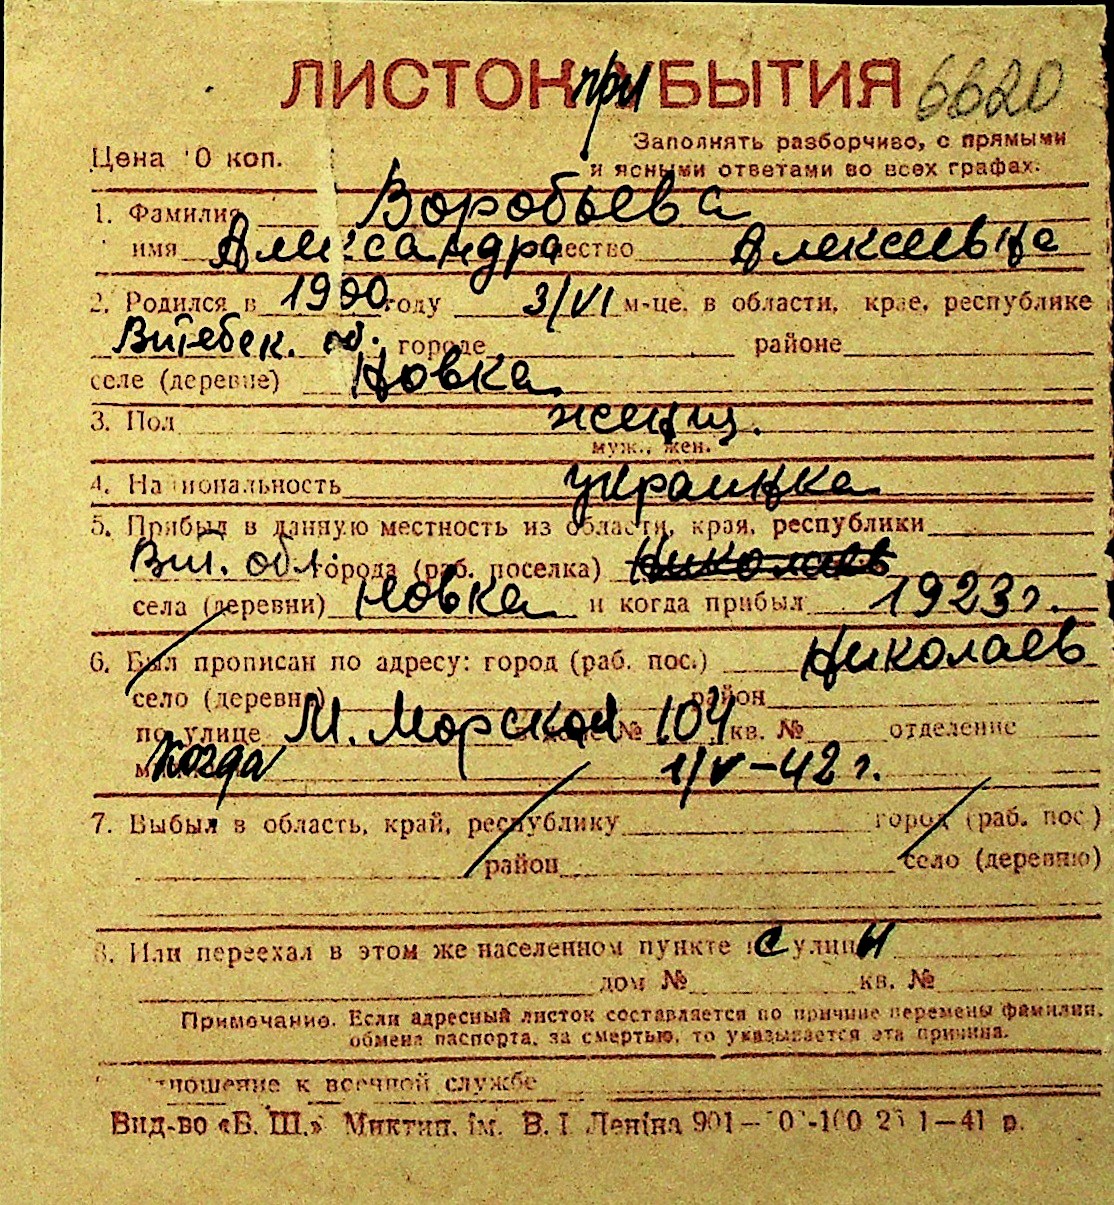 ЛИСТОК при БЫТИЯ 6620
Цена 10 коп. Заполнять разборчиво, с прямыми
и ясными ответами во всех графах.
1. Фамилия Воробьева
имя Александра чество Алексеевна
2. Родился в году 3/VI м-це, в области, крае, республике
Витебск. об. городе районе
селе (деревне) Новка
3. Пол женщ.
муж., жен.
4. Национальность украинка
5. Прибыл в данную местность из области, края, республики
Вит. обл. города (раб. поселка) Николаев
села (деревни) Новка и когда прибыл 1923 г.
6. Был прописан по адресу: город (раб. пос.) Николаев
село (деревня) район
по улице М. Морской № 104 кв. № отделение
когда 1/V-42 г.
7. Выбыл в область, край, республику город (раб. пос.)
район село (деревню)
8. Или переехал в этом же населенном пункте с улицы
дом № кв. №
Примечание. Если адресный листок составляется по причине перемены фамилии,
обмена паспорта, за смертью, то указывается эта причина.
тношение к военной службе
Вид-во «Б. Ш.» Миктип. ім. В. І. Леніна 901 1—41 р.